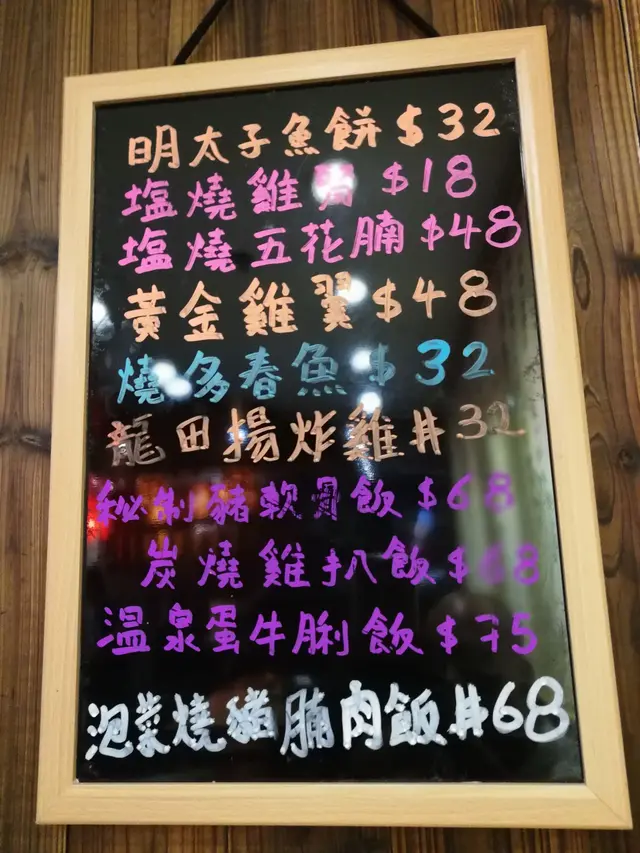 明太子魚餅 $32
塩燒雞 $18
塩燒五花腩 $48
黃金雞翼 $48
燒多春魚 $32
龍田揚炸雞 # 32
秘制豬軟骨飯 $68
炭燒雞扒飯 $68
温泉蛋牛脷飯 $75
泡菜燒豬腩肉飯 # 68